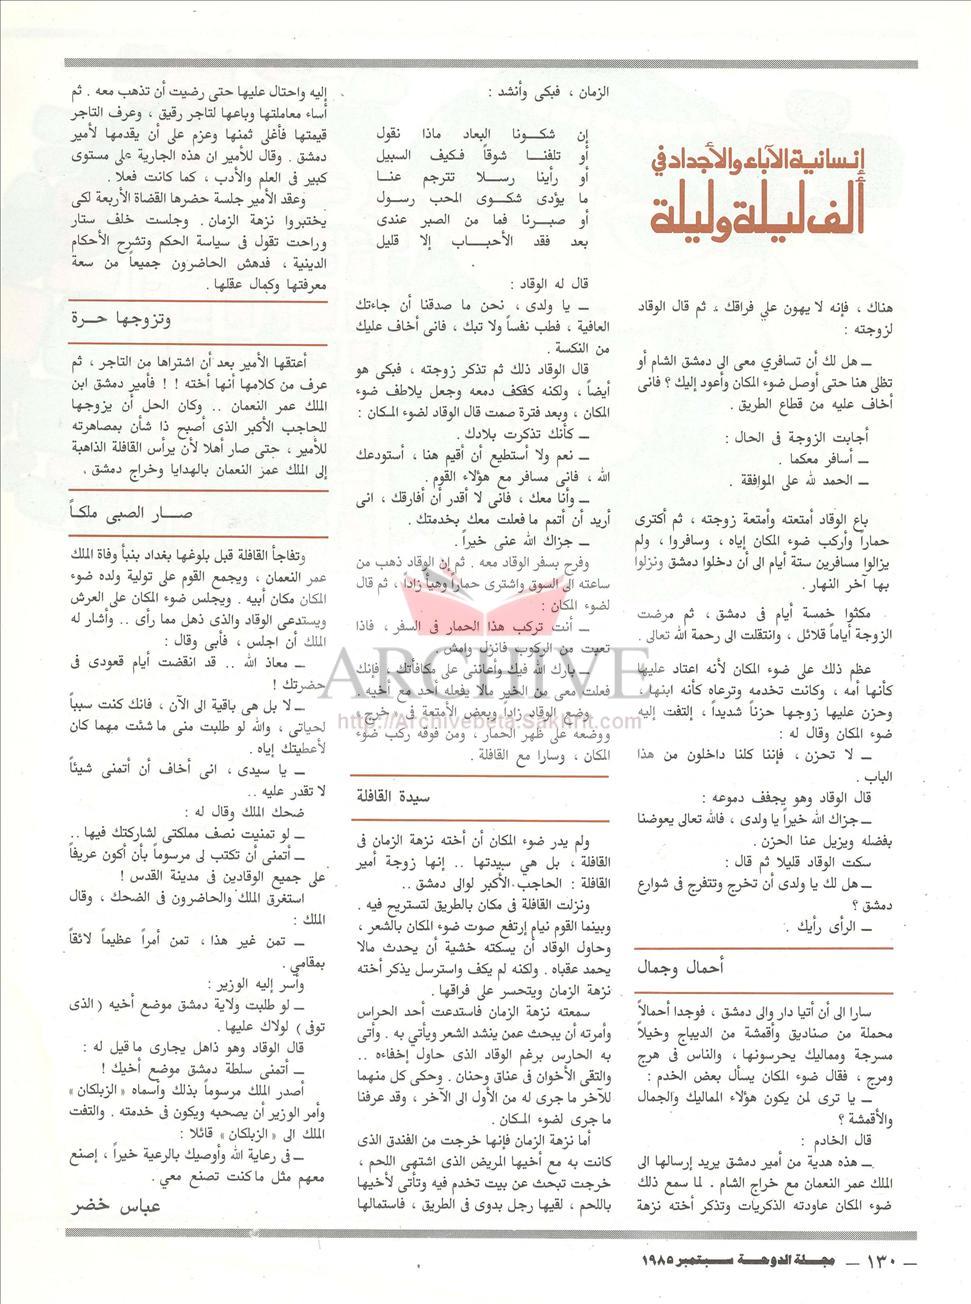 إنسانية الآباء والأجداد في
ألف ليلة وليلة
هناك ، فإنه لا يهون علي فراقك ، ثم قال الوقاد
لزوجته :
ــ هل لك أن تسافري معى الى دمشق الشام أو
تظلى هنا حتى أوصل ضوء المكان وأعود إليك ؟ فانى
أخاف عليه من قطاع الطريق .
أجابت الزوجة فى الحال :
ــ أسافر معكما .
ــ الحمد لله على الموافقة .
باع الوقاد أمتعته وأمتعة زوجته ، ثم أكترى
حماراً وأركب ضوء المكان إياه ، وسافروا ، ولم
يزالوا مسافرين ستة أيام الى أن دخلوا دمشق ونزلوا
بها آخر النهار .
مكثوا خمسة أيام فى دمشق ، ثم مرضت
الزوجة أياماً قلائل ، وانتقلت الى رحمة الله تعالى .
عظم ذلك على ضوء المكان لأنه اعتاد عليها
كأنها أمه ، وكانت تخدمه وترعاه كأنه ابنها ،
وحزن عليها زوجها حزناً شديداً ، إلتفت إليه
ضوء المكان وقال له :
ــ لا تحزن ، فإننا كلنا داخلون من هذا
الباب .
قال الوقاد وهو يجفف دموعه :
ــ جزاك الله خيراً يا ولدى ، فالله تعالى يعوضنا
بفضله ويزيل عنا الحزن .
سكت الوقاد قليلا ثم قال :
ــ هل لك يا ولدى أن تخرج وتتفرج فى شوارع
دمشق ؟
ــ الرأى رأيك .
أحمال وجمال
سارا الى أن أتيا دار والى دمشق ، فوجدا أحمالاً
محملة من صناديق وأقمشة من الديباج وخيلاً
مسرجة ومماليك يحرسونها ، والناس فى هرج
ومرج ، فقال ضوء المكان يسأل بعض الخدم :
ــ يا ترى لمن يكون هؤلاء المماليك والجمال
والأقمشة ؟
قال الخادم :
ــ هذه هدية من أمير دمشق يريد إرسالها الى
الملك عمر النعمان مع خراج الشام . لما سمع ذلك
ضوء المكان عاودته الذكريات وتذكر أخته نزهة
الزمان ، فبكى وأنشد :
إن شكونا البعاد ماذا نقول
أو تلفنا شوقاً فكيف السبيل
أو رأينا رسلا تترجم عنا
ما يؤدى شكوى المحب رسول
أو صبرنا فما من الصبر عندى
بعد فقد الأحباب إلا قليل
.
قال له الوقاد :
ــ يا ولدى ، نحن ما صدقنا أن جاءتك
العافية ، فطب نفساً ولا تبك ، فانى أخاف عليك
من النكسة .
قال الوقاد ذلك ثم تذكر زوجته ، فبكى هو
أيضاً ، ولكنه كفكف دمعه وجعل يلاطف ضوء
المكان ، وبعد فترة صمت قال الوقاد لضوء المكان :
ــ كأنك تذكرت بلادك .
ــ نعم ولا أستطيع أن أقيم هنا ، أستودعك
الله ، فانى مسافر مع هؤلاء القوم .
ــ وأنا معك ، فانى لا أقدر أن أفارقك ، انى
أريد أن أتمم ما فعلت معك بخدمتك .
ــ جزاك الله عنى خيراً .
وفرح بسفر الوقاد معه . ثم إن الوقاد ذهب من
ساعته الى السوق واشترى حماراً وهيأ زاداً ، ثم قال
لضوء المكان :
ــ أنت تركب هذا الحمار فى السفر ، فاذا
تعبت من الركوب فانزل وامش .
ــ بارك الله فيك وأعاننى على مكافأتك ، فإنك
فعلت معى من الخير مالا يفعله أحد مع أخيه .
وضع الوقاد زاداً وبعض الأمتعة فى خرج ،
ووضعه على ظهر الحمار ، ومن فوقه ركب ضوء
المكان ، وسارا مع القافلة .
سيدة القافلة
ولم يدر ضوء المكان أن أخته نزهة الزمان فى
القافلة ، بل هى سيدتها .. إنها زوجة أمير
القافلة : الحاجب الأكبر لوالى دمشق ..
ونزلت القافلة فى مكان بالطريق لتستريح فيه .
وبينما القوم نيام إرتفع صوت ضوء المكان بالشعر ،
وحاول الوقاد أن يسكته خشية أن يحدث مالا
يحمد عقباه . ولكنه لم يكف واسترسل يذكر أخته
نزهة الزمان ويتحسر على فراقها .
سمعته نزهة الزمان فاستدعت أحد الحراس
وأمرته أن يبحث عمن ينشد الشعر ويأتي به . وأتى
به الحارس برغم الوقاد الذى حاول إخفاءه ..
والتقى الأخوان فى عناق وحنان . وحكى كل منهما
للآخر ما جرى له من الأول الى الآخر ، وقد عرفنا
ما جرى لضوء المكان .
أما نزهة الزمان فإنها خرجت من الفندق الذى
كانت به مع أخيها المريض الذى اشتهى اللحم ،
خرجت تبحث عن بيت تخدم فيه وتأتى لأخيها
باللحم ، لقيها رجل بدوى فى الطريق ، فاستمالها
إليه واحتال عليها حتى رضيت أن تذهب معه . ثم
أساء معاملتها وباعها لتاجر رقيق ، وعرف التاجر
قيمتها فأغلى ثمنها وعزم على أن يقدمها لأمير
دمشق . وقال للأمير ان هذه الجارية على مستوى
كبير فى العلم والأدب ، كما كانت فعلا .
وعقد الأمير جلسة حضرها القضاة الأربعة لكى
يختبروا نزهة الزمان . وجلست خلف ستار
وراحت تقول فى سياسة الحكم وتشرح الأحكام
الدينية ، فدهش الحاضرون جميعاً من سعة
معرفتها وكمال عقلها .
وتزوجها حرة
أعتقها الأمير بعد أن اشتراها من التاجر ، ثم
عرف من كلامها أنها أخته ! ! فأمير دمشق ابن
الملك عمر النعمان .. وكان الحل أن يزوجها
للحاجب الأكبر الذى أصبح ذا شأن بمصاهرته
للأمير ، حتى صار أهلا لأن يرأس القافلة الذاهبة
إلى الملك عمر النعمان بالهدايا وخراج دمشق .
صار الصبى ملكاً
وتفاجأ القافلة قبل بلوغها بغداد بنبأ وفاة الملك
عمر النعمان ، ويجمع القوم على تولية ولده ضوء
المكان مكان أبيه . ويجلس ضوء المكان على العرش
ويستدعى الوقاد والذى ذهل مما رأى .. وأشار له
الملك أن اجلس ، فأبى وقال :
ــ معاذ الله .. قد انقضت أيام قعودى فى
حضرتك !
ــ لا بل هى باقية الى الآن ، فانك كنت سبباً
لحياتى ، والله لو طلبت منى ما شئت مهما كان
لأعطيتك إياه .
ــ يا سيدى ، انى أخاف أن أتمنى شيئاً
لا تقدر عليه ..
ضحك الملك وقال له :
ــ لو تمنيت نصف مملكتى لشاركتك فيها ..
ــ أتمنى أن تكتب لى مرسوماً بأن أكون عريفاً
على جميع الوقادين فى مدينة القدس !
استغرق الملك والحاضرون فى الضحك ، وقال
الملك :
ــ تمن غير هذا ، تمن أمراً عظيماً لائقاً
بمقامي .
وأسر إليه الوزير :
ــ لو طلبت ولاية دمشق موضع أخيه ( الذى
توفى ) لولاك عليها .
قال الوقاد وهو ذاهل يجارى ما قيل له :
ــ أتمنى سلطة دمشق موضع أخيك !
أصدر الملك مرسوماً بذلك وأسماه «الزبلكان»
وأمر الوزير أن يصحبه ويكون فى خدمته . والتفت
الملك الى «الزبلكان» قائلا :
ــ فى رعاية الله وأوصيك بالرعية خيراً ، إصنع
معهم مثل ما كنت تصنع معي .
عباس خضر
ARCHIVE
http://Archivebeta.Sakhrit.com
– ١٣٠ – مجلة الدوحة سبتمبر ١٩٨٥